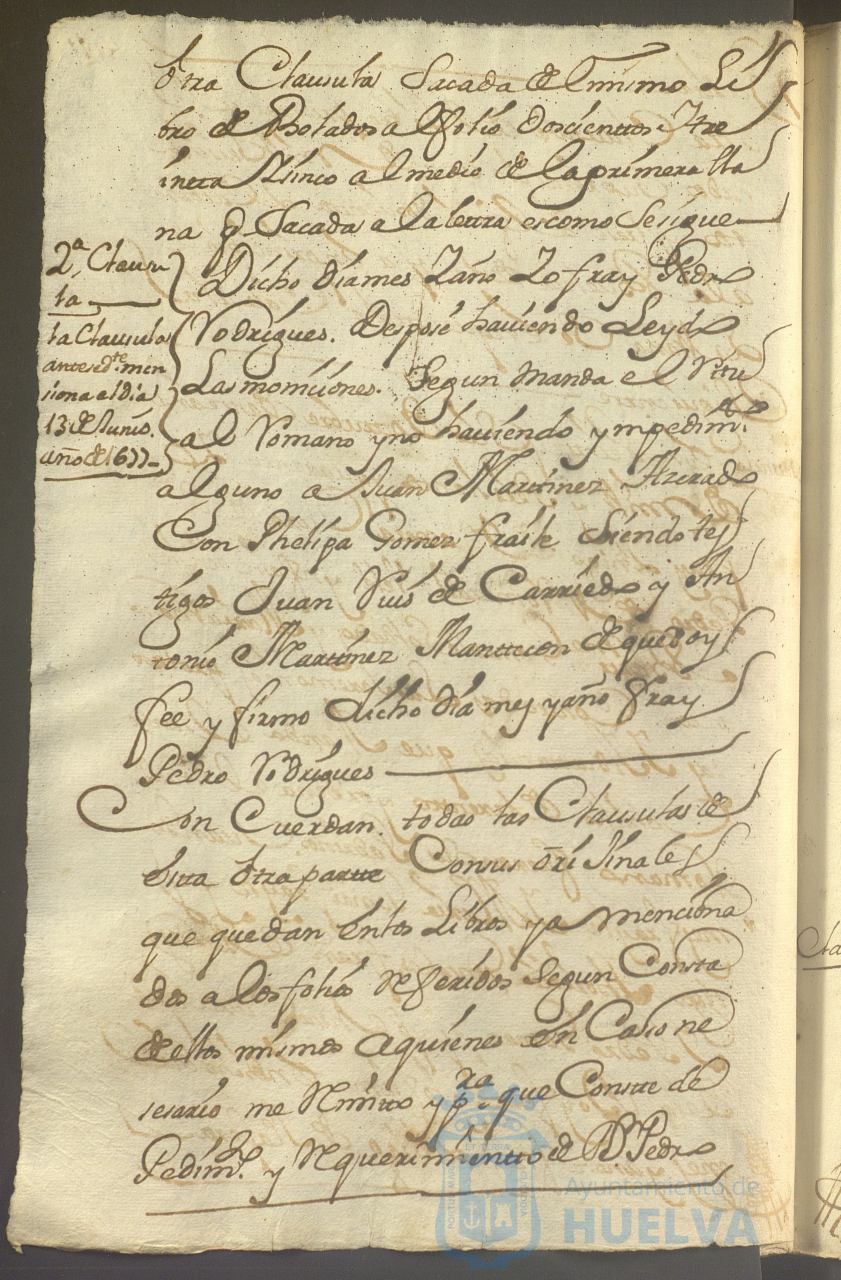 Otra Clausula Sacada del mismo Li
bro de Botados al folio Doscienttos Ytre
intta Zinco al medio de la primera lla
na q Sacada a la letra es como Sesigue
2ª Clausu
la
Dicho dia mes Y año Yo fray Pedro
Rodrigues. Desposé haviendo Leydo
la Clausula
antesedte. men
siona el dia
13 de Junio.
año de 1677
Las moniciones. Segun manda el Ritu
al Romano y no haviendo ympedimto.
alguno a Juan Martinez Azerado
Con Phelipa Gomez fraile Siendo tes
tigos Juan Ruis de Carriedo y An
tonio Martinez Manttecon de que doy
fee y firmo dicho dia mes y año Fray
Pedro Rodrigues
Con Cuerdan. todas las Clausulas de
estta otra partte Consus oriJinales
que quedan en los Libros ya menciona
dos a los folios Referidos Segun Consta
de ellos mismos aquienes en Caso ne
sesario me Rimitto y pra. que Conste de
Pedimto. y Requerimientto de Dn Pedro
Ayuntamiento de
HUELVA